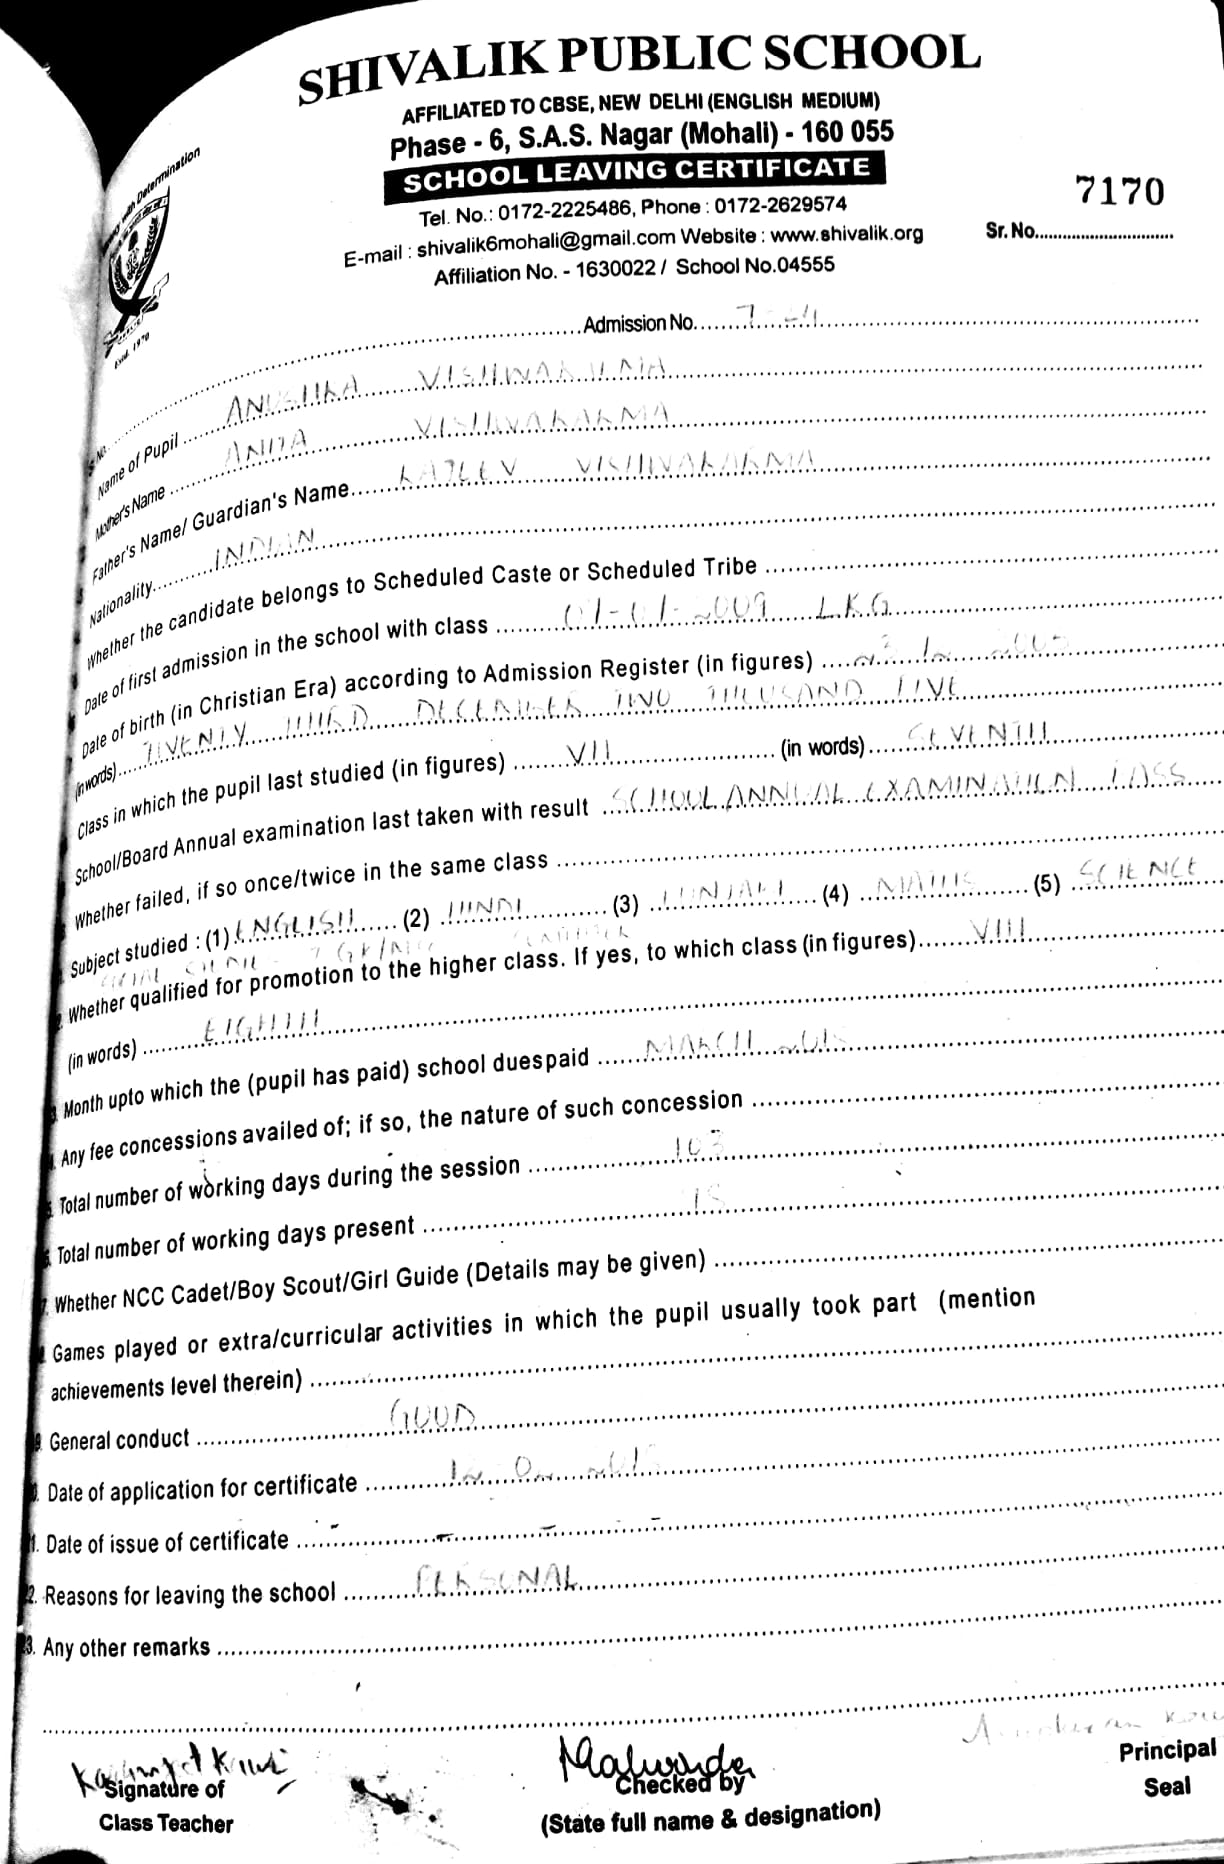 SHIVALIK PUBLIC SCHOOL
AFFILIATED TO CBSE, NEW DELHI (ENGLISH MEDIUM)
Phase - 6, S.A.S. Nagar (Mohali) - 160 055
SCHOOL LEAVING CERTIFICATE
7170
Tel. No.: 0172-2225486, Phone : 0172-2629574
Sr. No.
E-mail : shivalik6mohali@gmail.com Website : www.shivalik.org
Affiliation No. - 1630022 / School No.04555
with Determination
Estd. 1970
Admission No.
Name of Pupil ANUSHKA VISHWAKARMA
Mother's Name ANITA VISHWAKARMA
Father's Name/ Guardian's Name RAJEEV VISHWAKARMA
Nationality INDIAN
Whether the candidate belongs to Scheduled Caste or Scheduled Tribe
Date of first admission in the school with class 01-01-2009 LKG
Date of birth (in Christian Era) according to Admission Register (in figures) 23 12 2005
(in words) TWENTY THIRD DECEMBER TWO THOUSAND FIVE
Class in which the pupil last studied (in figures) VII (in words) SEVENTH
School/Board Annual examination last taken with result SCHOOL ANNUAL EXAMINATION PASS
Whether failed, if so once/twice in the same class
Subject studied : (1) ENGLISH (2) HINDI (3) PUNJABI (4) MATHS (5) SCIENCE
SOCIAL
Whether qualified for promotion to the higher class. If yes, to which class (in figures) VIII
(in words) EIGHTH
Month upto which the (pupil has paid) school duespaid MARCH
Any fee concessions availed of; if so, the nature of such concession
Total number of working days during the session 103
Total number of working days present
Whether NCC Cadet/Boy Scout/Girl Guide (Details may be given)
Games played or extra/curricular activities in which the pupil usually took part (mention
achievements level therein)
General conduct GOOD
Date of application for certificate
1. Date of issue of certificate
2. Reasons for leaving the school PERSONAL
3. Any other remarks
Signature of
Class Teacher
Checked by
(State full name & designation)
Principal
Seal